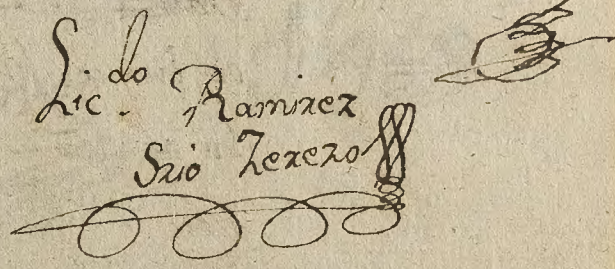 Lic.do Ramirez
Srio Zerezo